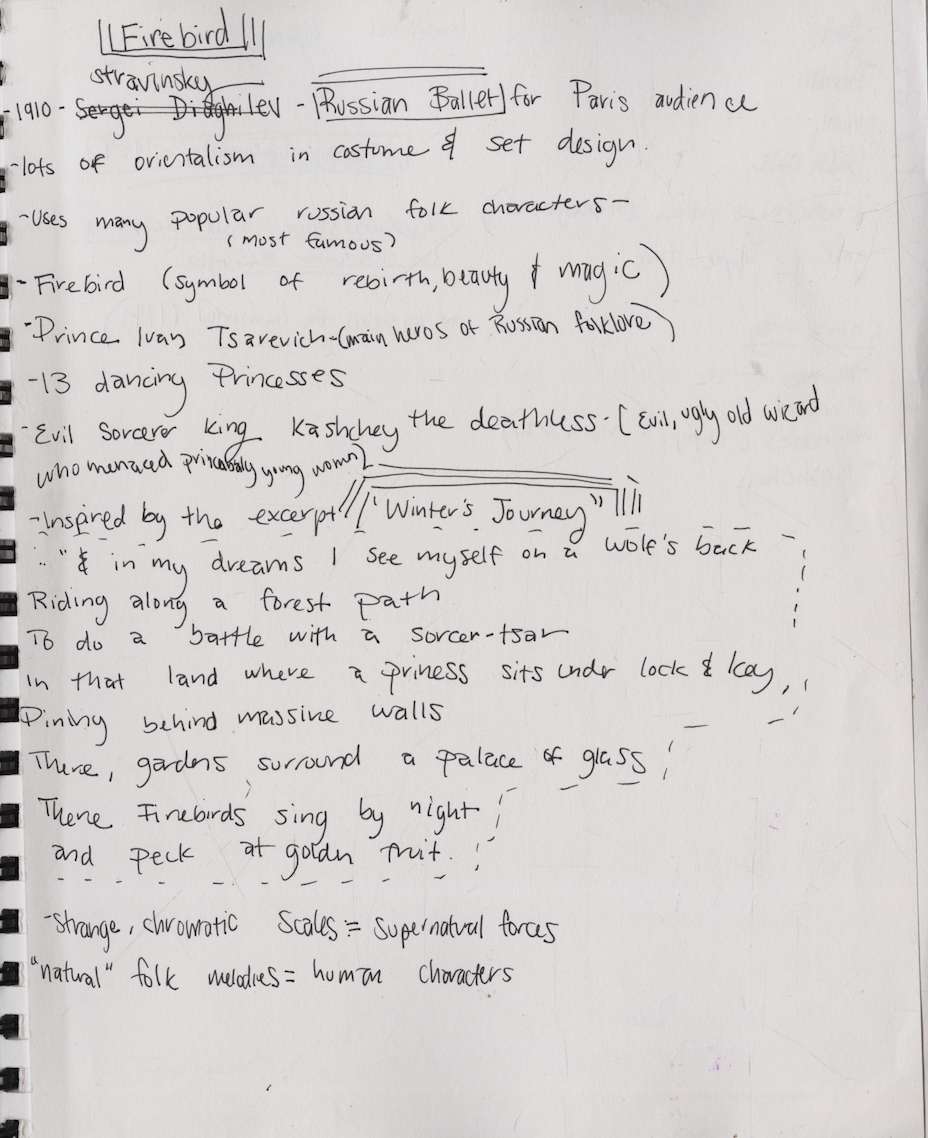 Firebird
Stravinsky
-1910 - Sergei Diaghilev - Russian Ballet for Paris audience
-lots of orientalism in costume & set design.
-Uses many popular russian folk characters-
(most famous)
-Firebird (symbol of rebirth, beauty & magic)
-Prince Ivan Tsarevich-(main heros of Russian folklore)
-13 dancing Princesses
-Evil Sorcerer king Kashchey the deathless-[Evil, ugly old wizard
who menaced young women]
-Inspired by the excerpt "Winter's Journey"
"& in my dreams I see myself on a wolf's back
Riding along a forest path
To do a battle with a sorcer-tsar
in that land where a priness sits undr lock & key,
Pining behind massive walls
There, gardens surround a palace of glass
There Firebirds sing by night
and peck at goldn fruit.
-strange, chromatic scales = supernatural forces
"natural" folk melodies = human characters